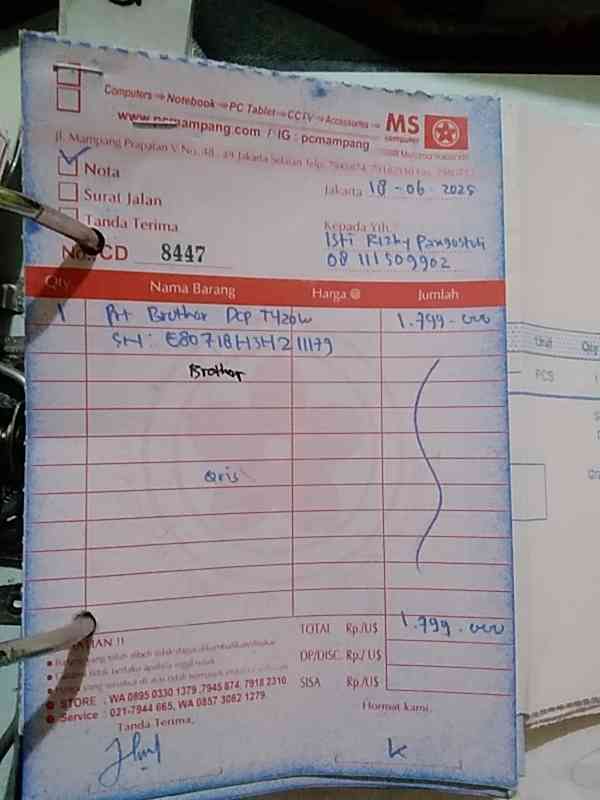 Computers ⇒ Notebook ⇒ PC Tablet ⇒ CCTV ⇒ Accessories ⇒
MS
computer
www.pcmampang.com / IG : pcmampang
Jl. Mampang Prapatan V No. 48 - 49 Jakarta Selatan Telp.
Nota
Surat Jalan
Tanda Terima
No. CD 8447
Jakarta 18 - 06 - 2025
Kepada Yth.
Isti Rizky Pangastuti
08 111509902
Qty Nama Barang Harga @ Jumlah
1 Prt Brother Dcp T420w 1.799.000
SN: E80718H3H211179
Brother
Qris
TOTAL Rp./U$ 1.799.000
DP/DISC. Rp./ U$
SISA Rp./U$
STORE : WA 0895 0330 1379 ,7945 874, 7918 2310
Service : 021-7944 665, WA 0857 3082 1279
Tanda Terima,
Hormat kami,
Unit Qty
PCS 1